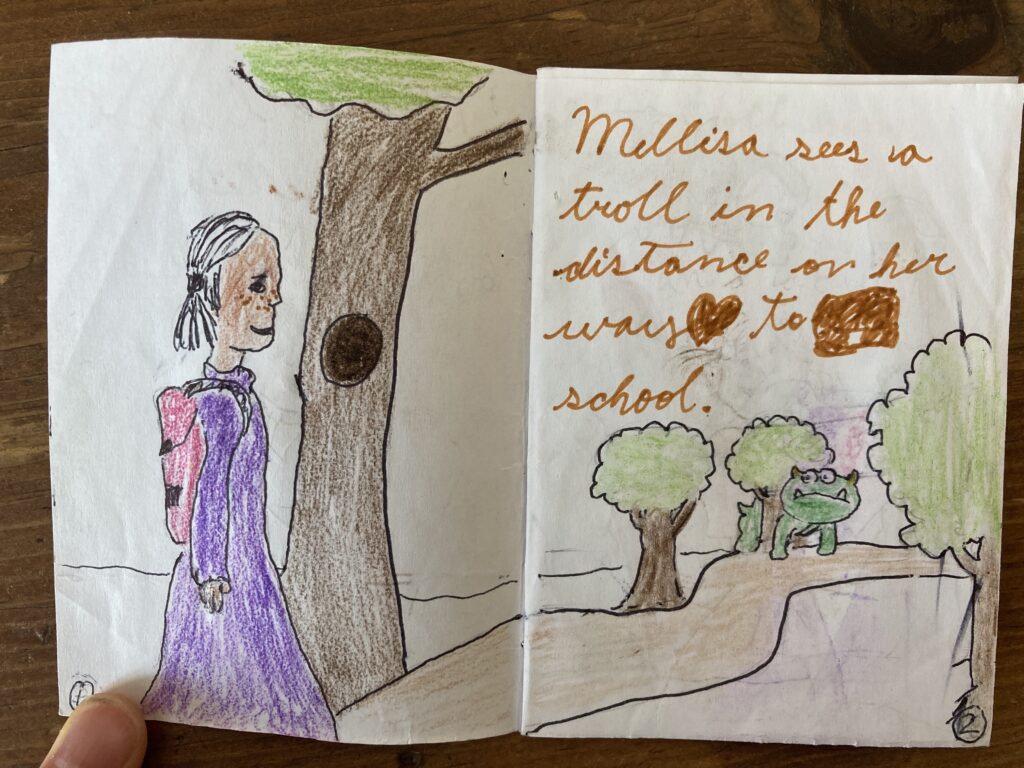 Mellisa sees a
troll in the
distance on her
way to
school.
1
2